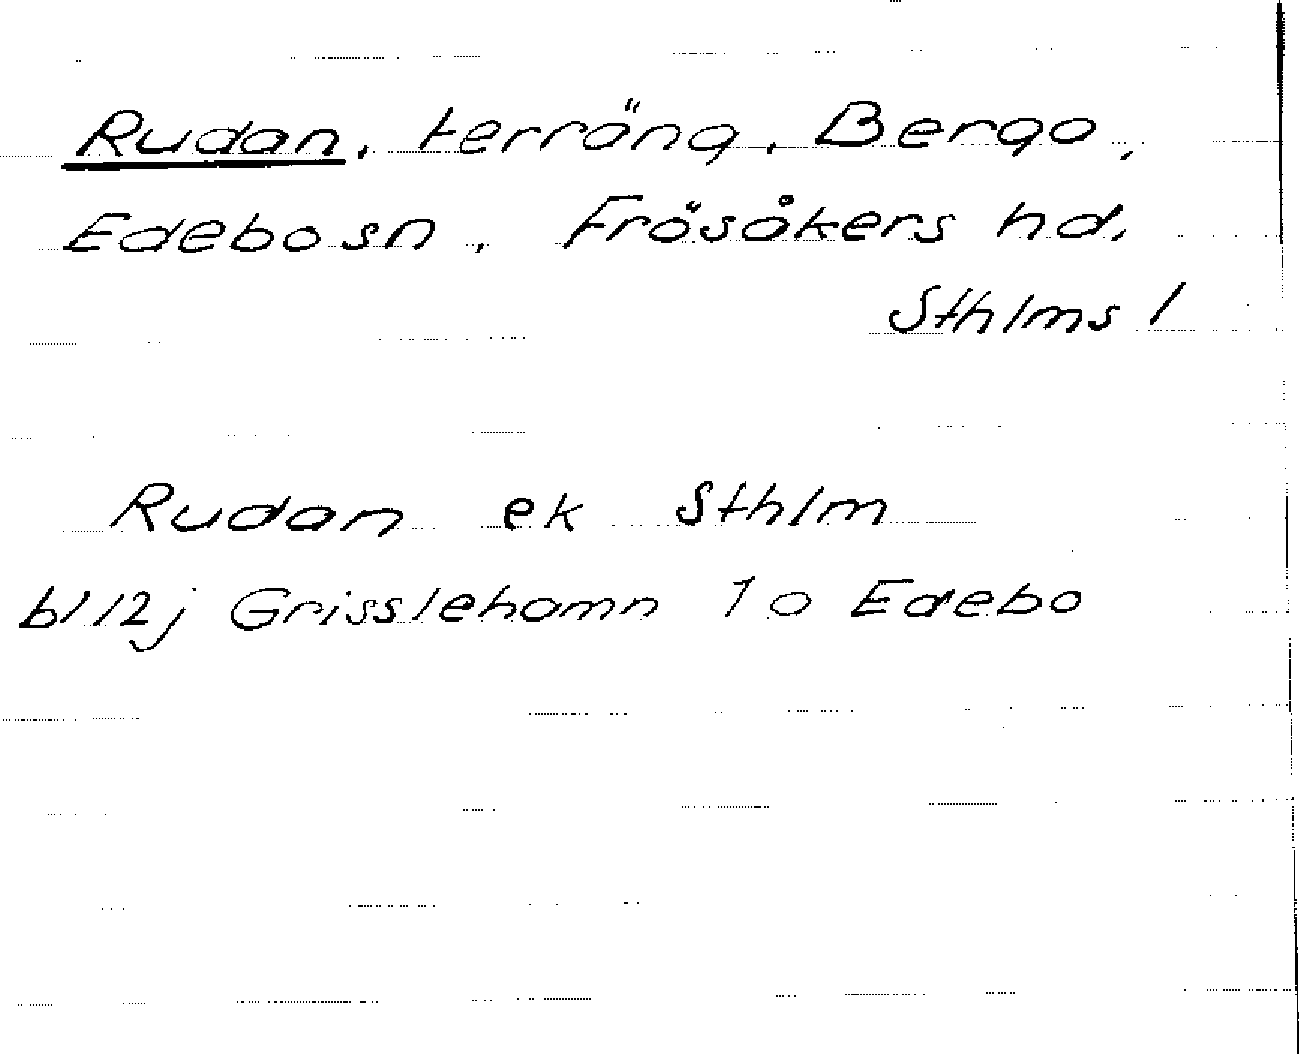 Rudan, terräng, Bergo,
Edebo sn, Frösåkers hd,
Sthlms l
Rudan ek Sthlm
bl 12j Grisslehamn 1 o Edebo